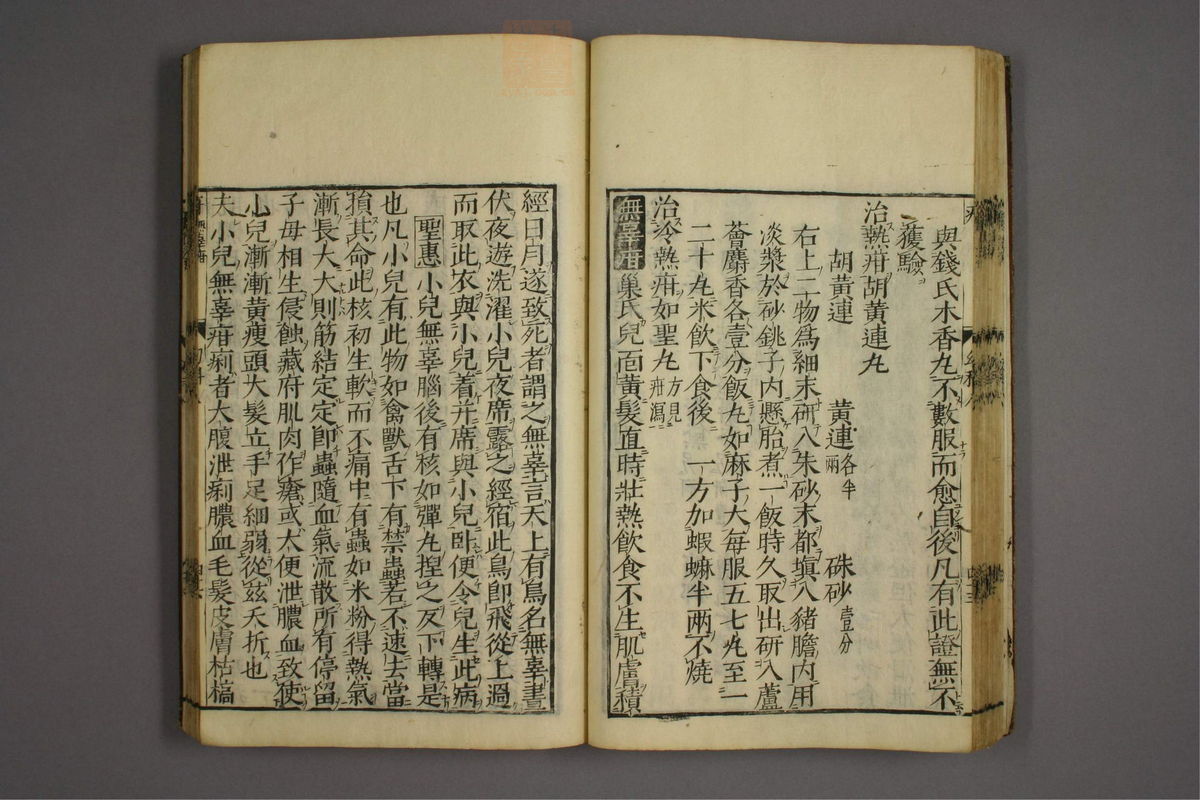 與錢氏木香丸不數服而愈自後凡有此證無不
獲驗
治熱疳胡黃連丸
胡黃連　黃連各半兩　硃砂壹分
右上二物爲細末研入朱砂末都塡入豬膽內用
淡漿於砂銚子內懸胎煮一飯時久取出研入蘆
薈麝香各壹分飯丸如麻子大每服五七丸至一
二十丸米飲下食後　一方加蝦蟆半兩不燒
治冷熱疳如聖丸方見疳瀉
無辜疳巢氏兒面黃髮直時壯熱飲食不生肌膚積
經日月遂致死者謂之無辜言天上有鳥名無辜晝
伏夜遊洗濯小兒夜席露之經宿此鳥卽飛從上過
而取此衣與小兒着幷席與小兒臥便令兒生此病
聖惠小兒無辜腦後有核如彈丸捏之皮下轉是
也凡小兒有此物如禽獸舌下有禁蟲若不速去當
損其命此核初生軟而不痛中有蟲如米粉得熱氣
漸長大大則筋結定定卽蟲隨血氣流散所有停留
子母相生侵蝕藏府肌肉作瘡或大便泄膿血致使
小兒漸漸黃瘦頭大髮立手足細弱從茲夭折也
夫小兒無辜疳痢者大腹泄痢膿血毛髮皮膚枯槁